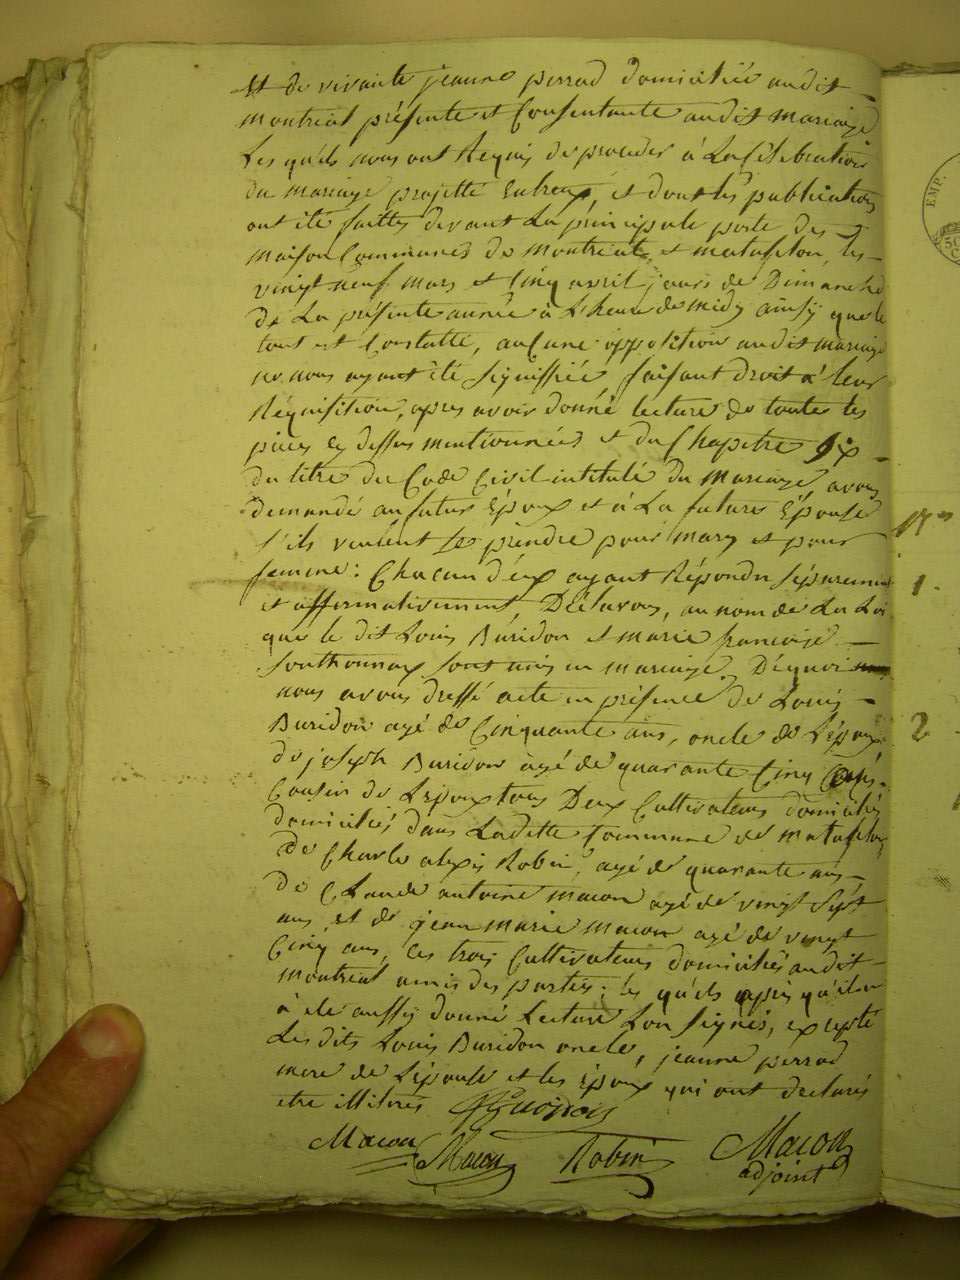 et de vivante jeanne perrad domiciliée audit
montreal présente et Consentante audit mariage
Les quels nous ont Requis de proceder à La Célébration
du mariage projetté Entreux, et dont les publications
ont été faittes devant La principale porte des
maison Communes de montreal, et matafelon, les
vingt neuf mars et Cinq avril jours de Dimanche
de La présente année à L'heure de midy ainsy que le
tout est Constatté, auCune opposition audit mariage
ne nous ayant été signiffiée, faisant droit à leur
Réquisition, apres avoir donné lecture de toutes les
pièces cy dessus mentionnées et du Chapitre six
du titre du Code Civil intitulé du Mariage, avons
demandé au futur Époux et à La future Épouse
s'ils veulent se prendre pour mary et pour
femme: Chacun d'eux ayant Répondu séparement
et affirmativement Déclarons, au nom de La Loi
que le dit Louis Buridon et marie françoise
Southonnax sont unis en mariage. De quoi
nous avons dressé acte en présence de Louis
Buridon agé de Cinquante ans, oncle de L'époux
de joseph Buridon agé de quarante Cinq
Cousin de L'époux tous Deux Cultivateurs domiciliés
domiciliés dans Laditte Commune de Matafelon
de Charle alexis Robin, agé de quarante ans
de Claude antoine macon agé de vingt sept
ans, et de jean marie macon agé de vingt
Cinq ans, Ces trois Cultivateurs domiciliés audit
montreal amis des parties; les quels après qu'il en
à été aussy donné Lecture L'on signés, excepté
Les dits Louis Buridon oncle, jeanne perrad
mere de L'épouse et les Époux qui ont declarés
etre illitérés
Macon Macon Robin Macon
adjoint
1.
2
EMP.